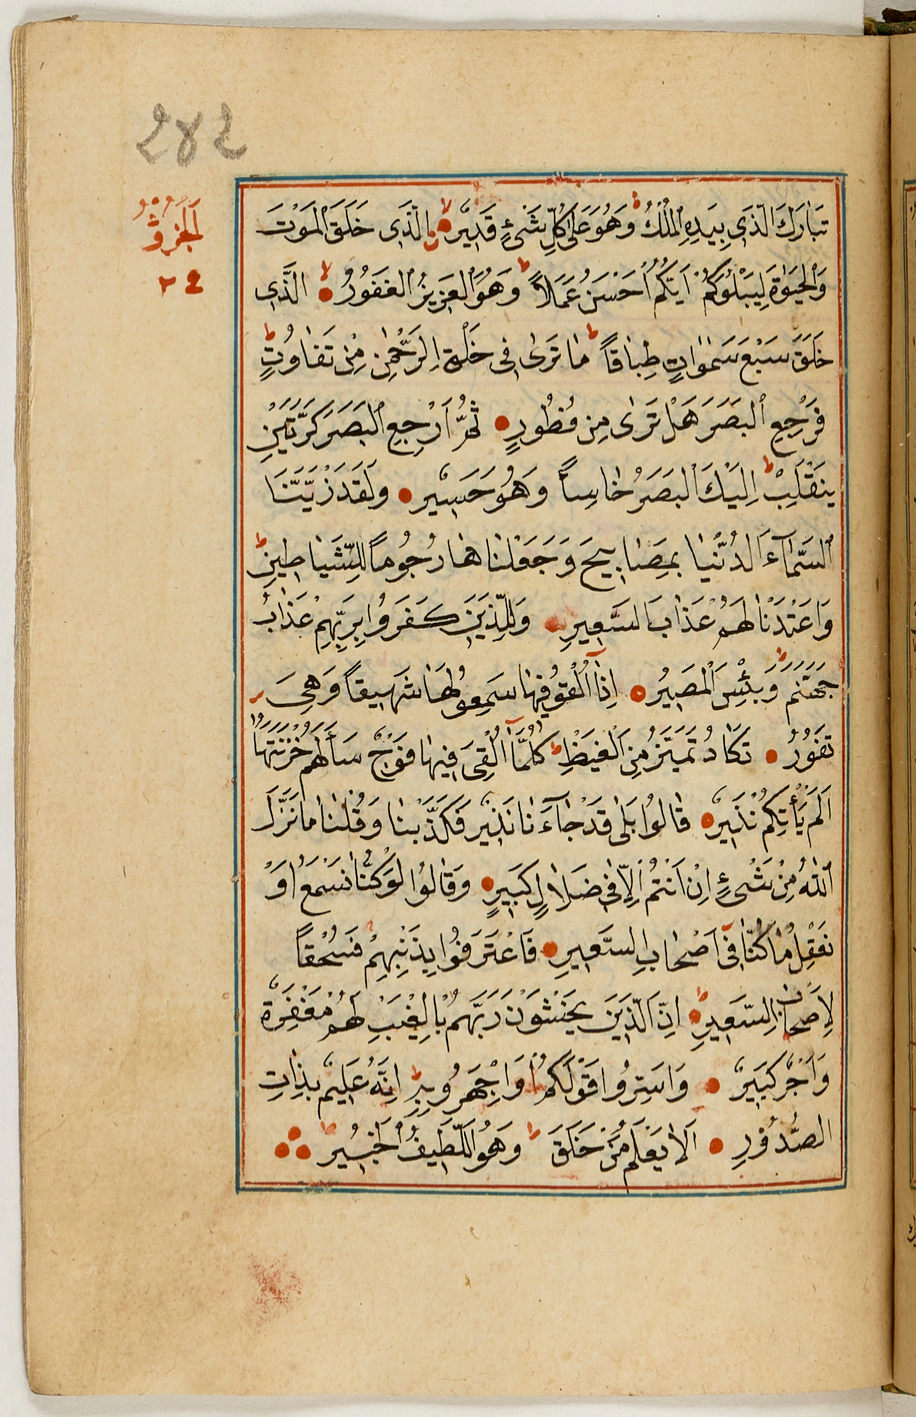 ٢٤٢
الجزؤ
٢٩
تَبَارَكَ الَّذَى بِيَدِهِ الْمُلْكُ ط وَهُوَ عَلَى كُلِّ شَىْءٍ قَدِيرٌ لا الَّذَى خَلَقَ الْمَوْتَ
وَالْحَيٰوةَ لِيَبْلُوَكُمْ اَيُّكُمْ اَحْسَنُ عَمَلًا ط وَهُوَ الْعَزِيزُ الْغَفُورُ لا الَّذَى
خَلَقَ سَبْعَ سَمٰوَاتٍ طِبَاقًا ط مَا تَرَى فِى خَلْقِ الرَّحْمٰنِ مِنْ تَفَاوُتٍ ط
فَرْجِعِ الْبَصَرَ هَلْ تَرَى مِنْ فُطُورٍ ثُمَّ ارْجِعِ الْبَصَرَ كَرَّتَيْنِ
يَنْقَلِبْ اِلَيْكَ الْبَصَرُ خَاسِأً وَهُوَ حَسِيرٌ وَلَقَدْ زَيَّنَّا
السَّمَآءَ الدُّنْيَا بِمَصَابِيحَ وَجَعَلْنَاهَا رُجُومًا لِلشَّيَاطِينِ ط
وَاَعْتَدْنَا لَهُمْ عَذَابَ السَّعِيرِ وَلِلَّذِينَ كَفَرُوا بِرَبِّهِمْ عَذَابُ
جَهَنَّمَ ط وَبِئْسَ الْمَصِيرُ اِذَآ اُلْقُو فِيهَا سَمِعُوا لَهَا شَهِيقًا وَهِىَ
تَفُورُ تَكَادُ تَمَيَّزُ مِنَ الْغَيْظِ ط كُلَّمَآ اُلْقِىَ فِيهَا فَوْجٌ سَاَلَهُمْ خَزَنَتُهَا
اَلَمْ يَأْتِكُمْ نَذِيرٌ قَالُوا بَلَى قَدْ جَآءَنَا نَذِيرٌ فَكَذَّبْنَا وَقُلْنَا مَا نَزَّلَ
اللّٰهُ مِنْ شَىْءٍ اِنْ اَنْتُمْ اِلَّا فِى ضَلَالٍ كَبِيرٍ وَقَالُوا لَوْ كُنَّا نَسْمَعُ اَوْ
نَعْقِلُ مَا كُنَّا فِى اَصْحَابِ السَّعِيرِ فَاعْتَرَفُوا بِذَنْبِهِمْ فَسُحْقًا
لِاَصْحَابِ السَّعِيرِ اِنَّ الَّذِينَ يَخْشَوْنَ رَبَّهُمْ بِالْغَيْبِ لَهُمْ مَغْفِرَةٌ
وَاَجْرٌ كَبِيرٌ وَاَسِرُّوا قَوْلَكُمْ اَوِ اجْهَرُو بِهِ ط اِنَّهُ عَلِيمٌ بِذَاتِ
الصُّدُورِ اَلَا يَعْلَمُ مَنْ خَلَقَ ط وَهُوَ اللَّطِيفُ الْخَبِيرُ